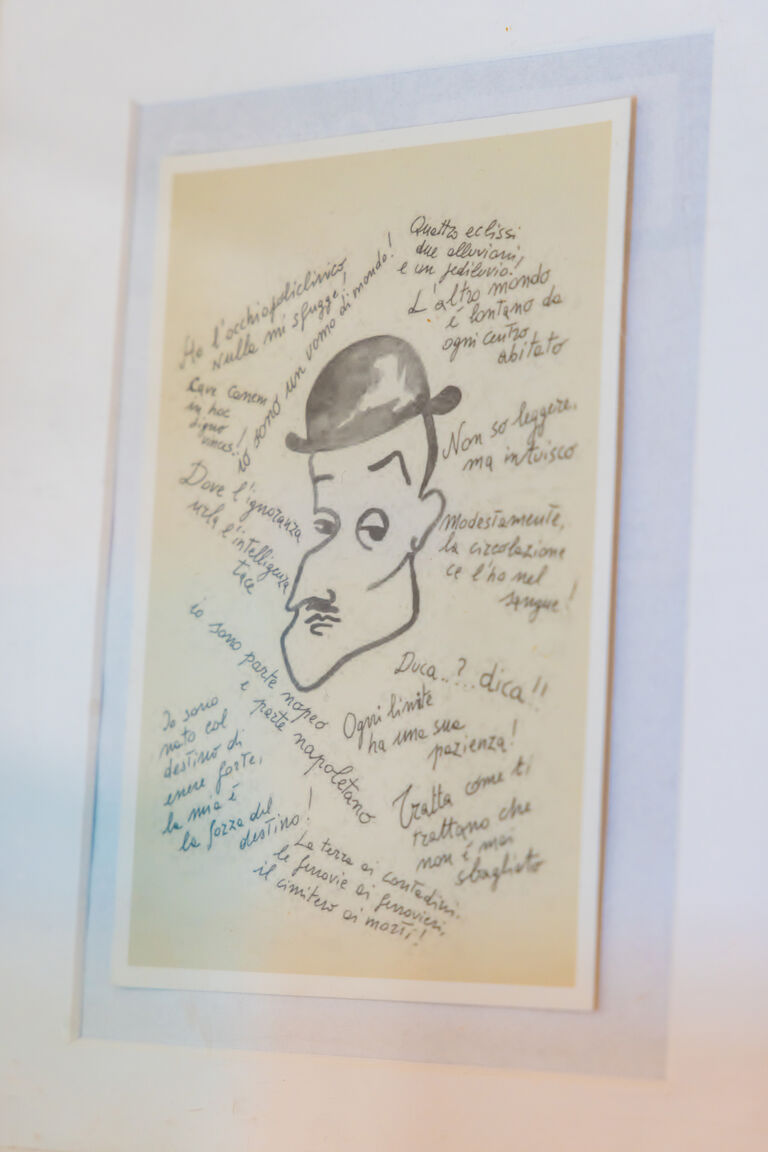 Ho l'occhiopoliclinico
nulla mi sfugge!
io sono un uomo di mondo!
Quattro eclissi
due alluvioni,
e un pediluvio!
L'altro mondo
è lontano da
ogni centro
abitato
Cave canem
in hoc
signo
vinces!
Non so leggere,
ma intuisco
Dove l'ignoranza
urla l'intelligenza
tace
Modestamente,
la circolazione
ce l'ho nel
sangue!
io sono parte nopeo
e parte napoletano
Duca..?...dica!!
Ogni limite
ha una sua
pazienza!
Io sono
nato col
destino di
essere forte,
la mia è
la forza del
destino!
Tratta come ti
trattano che
non è mai
sbagliato
La terra ai contadini.
le ferrovie ai ferrovieri,
il cimitero ai morti!